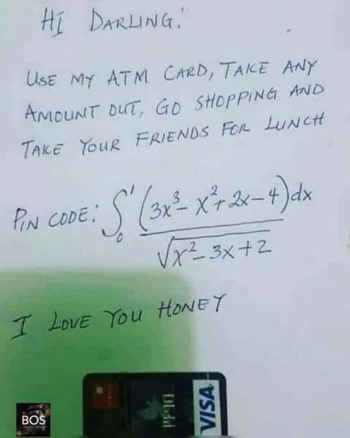 HI DARLING!
USE MY ATM CARD, TAKE ANY
AMOUNT OUT, GO SHOPPING AND
TAKE YOUR FRIENDS FOR LUNCH
PIN CODE: ∫₀¹ (3x³ - x² + 2x - 4) dx / √(x² - 3x + 2)
I LOVE YOU HONEY
VISA
BOS